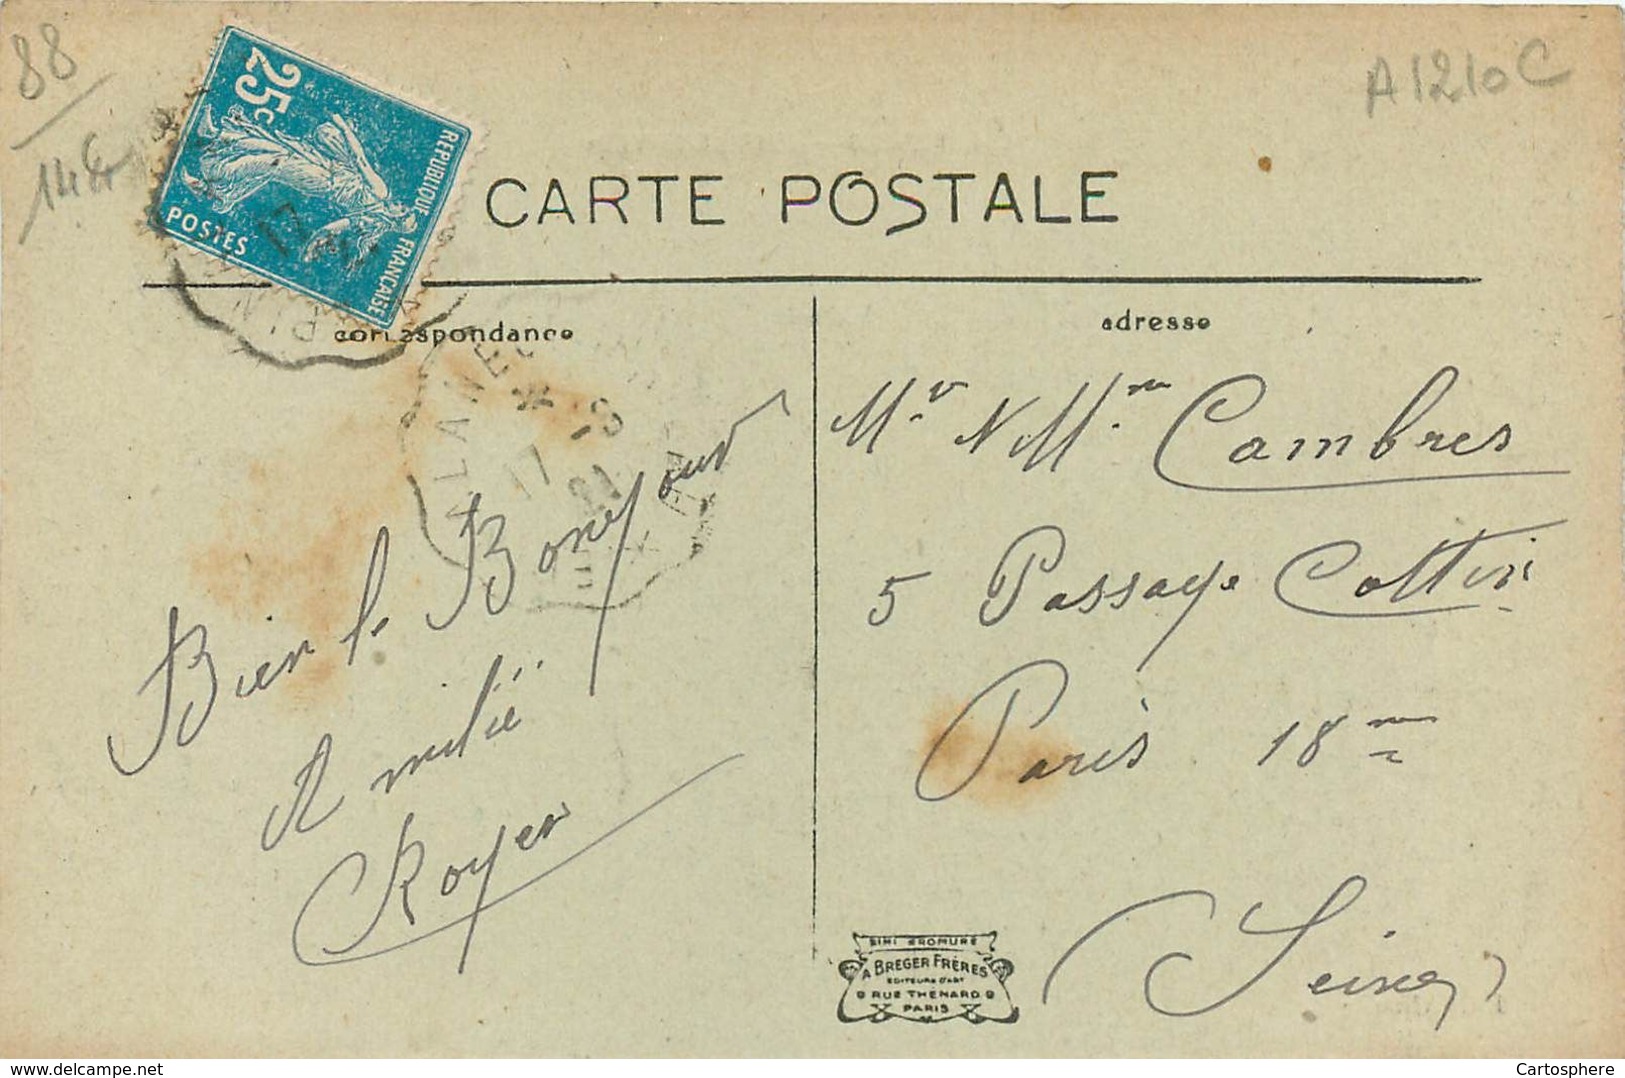 88
14€
A1210C
25c
REPUBLIQUE FRANÇAISE
POSTES
17
CARTE POSTALE
correspondance
adresse
17 -9
21
Bien le Bonjour
Amitié
Royer
Mr & Mme Cambres
5 Passage Cottin
Paris 18me
(Seine)
SIMI BROMURE
A BREGER FRÈRES
EDITEURS D'ART
9 RUE THÉNARD 9
PARIS
delcampe.net
Cartosphere